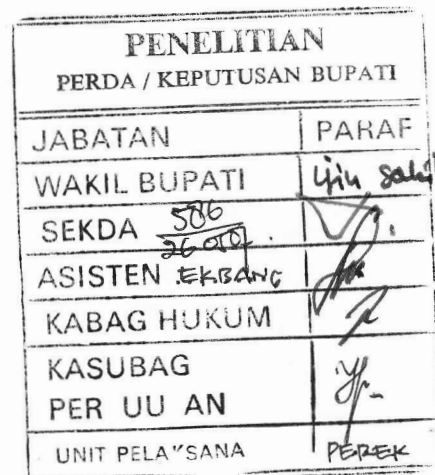 PENELITIAN
PERDA / KEPUTUSAN BUPATI
JABATAN PARAF
WAKIL BUPATI ijin
SEKDA 506
ASISTEN EKBANG
KABAG HUKUM
KASUBAG
PER UU AN
UNIT PELAKSANA PEREK